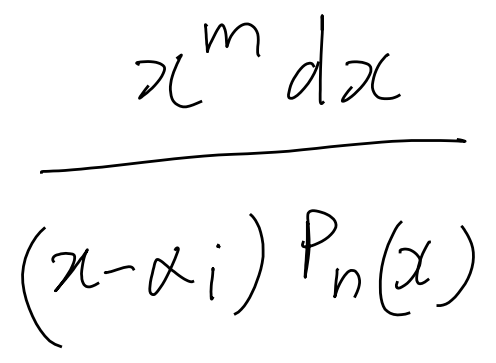 x^m dx
(x-α_i) P_n(x)